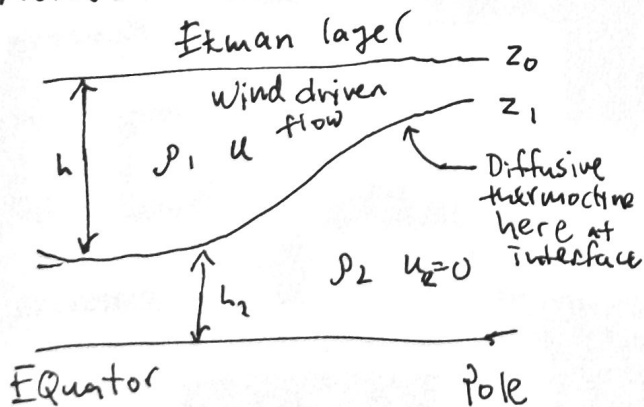 Ekman layer
z₀
Wind driven
flow
z₁
h
ρ₁ u
Diffusive
thermocline
here at
interface
ρ₂ u₂=0
h₂
EQuator
Pole